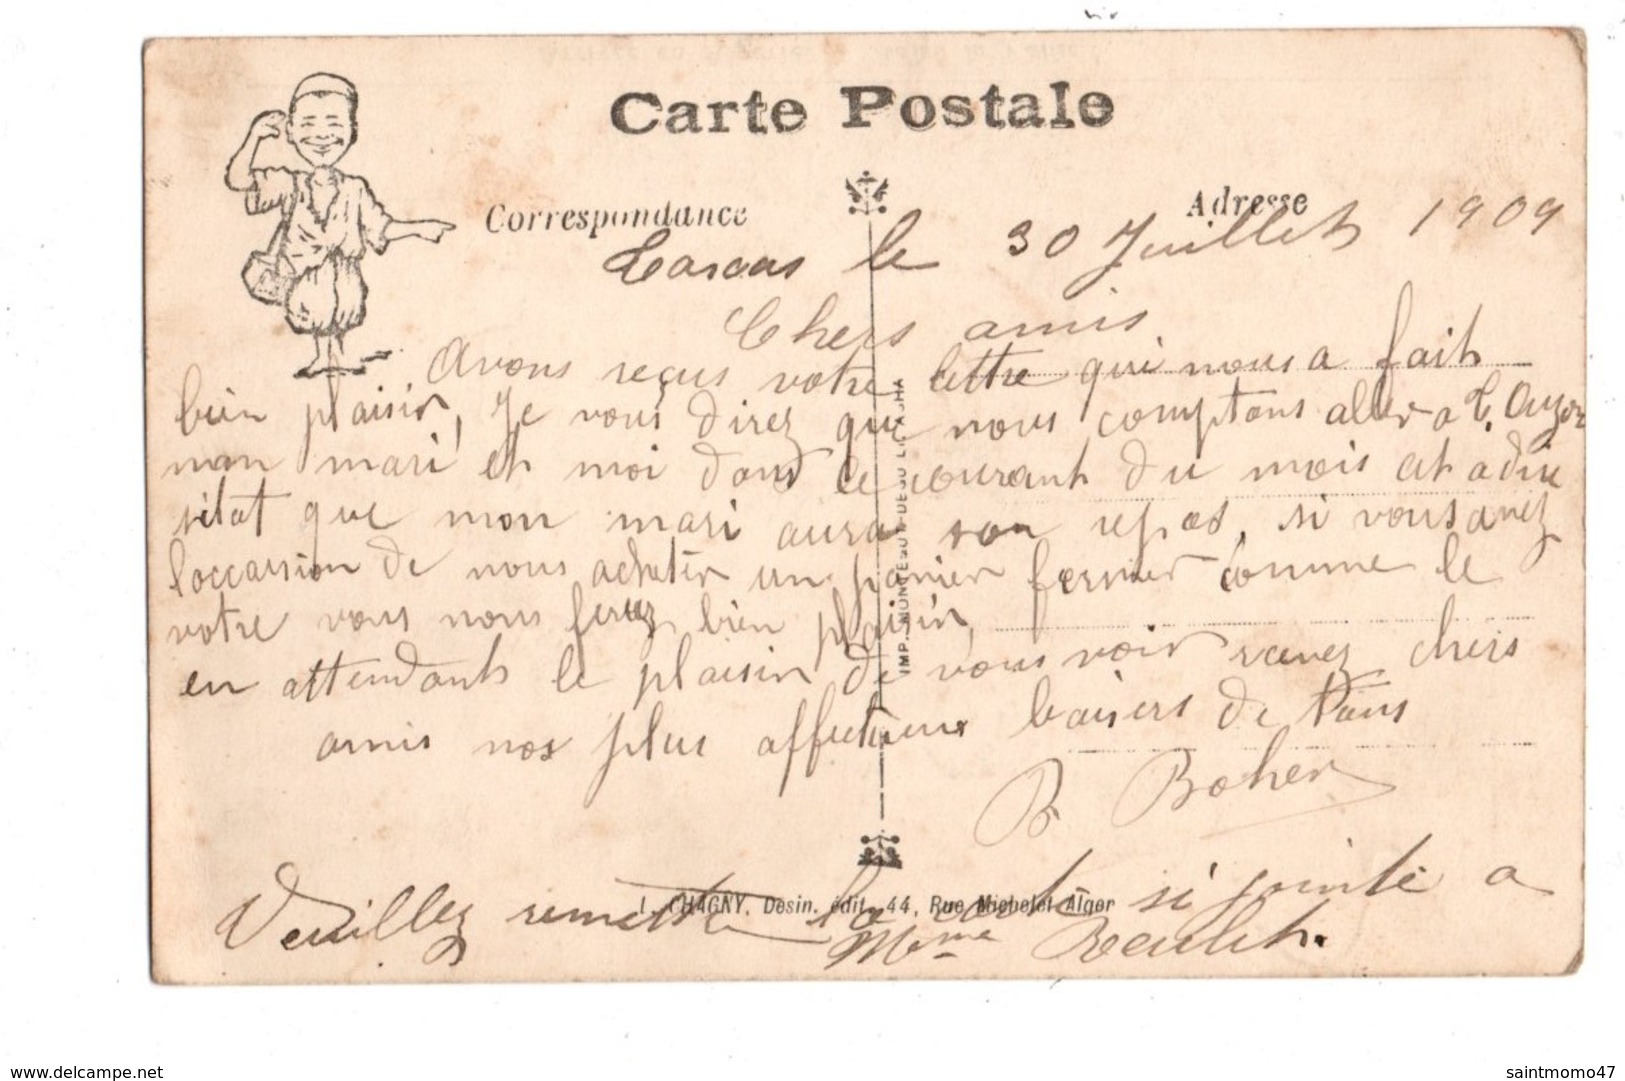 Carte Postale
Correspondance
Adresse
le 30 Juillet 1909
Chers amis
Avons reçus votre lettre qui nous a fait
bien plaisir, Je vous direz que nous comptons aller a
mon mari et moi dans le courant du mois et a dire
sitot que mon mari aura son repos, si vous avez
l'occassion de nous acheter un panier fermer comme le
votre vous nous ferez bien plaisir,
en attendant le plaisir de vous voir recevez chers
amis nos plus affectueux baisers de tous
B Boher
Veuillez remettre la carte si jointe a
Mme
J. CHAGNY, Desin. édit. 44, Rue Michelet Alger
www.delcampe.net
saintmomo47